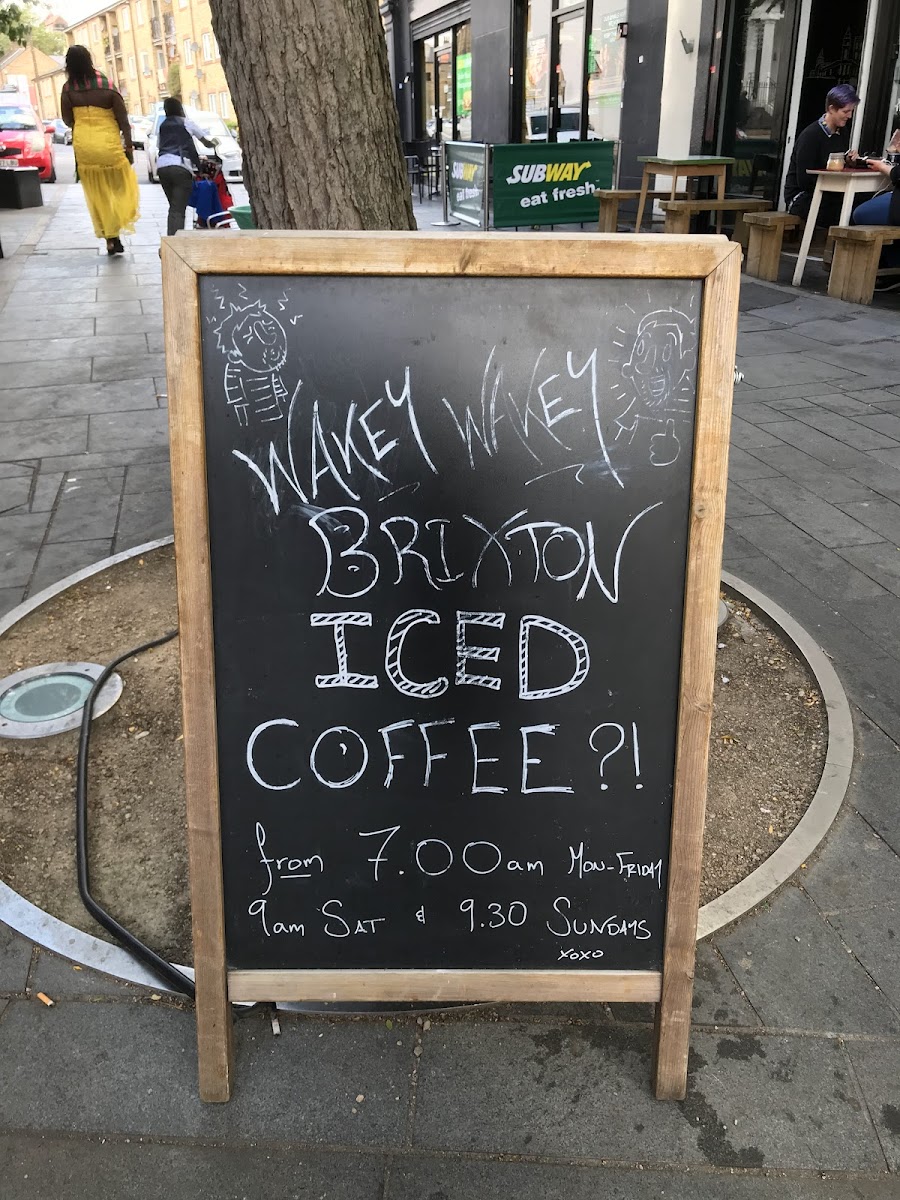 SUBWAY
eat fresh.
WAKEY WAKEY
BRIXTON
ICED
COFFEE?!
from 7.00am MON-FRIDAY
9am SAT & 9.30 SUNDAYS
xoxo